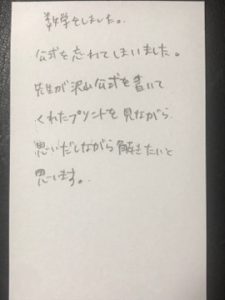 数学をしました。
公式を忘れてしまいました。
先生が沢山公式を書いて
くれたプリントを見ながら
思いだしながら解きたいと
思います。